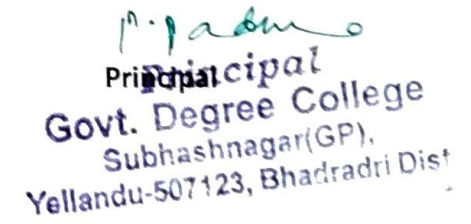 Principal
Principal
Govt. Degree College
Subhashnagar(GP),
Yellandu-507123, Bhadradri Dist